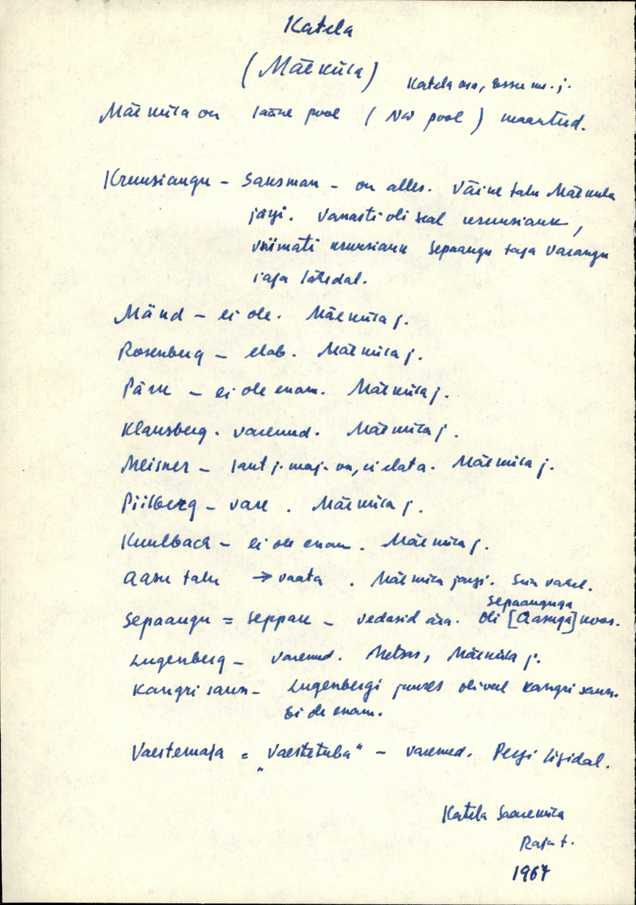 Katela
(Mäeküla) Katela osa, Essu m. j.
Mäeküla on lääne pool (NW pool) maanteed.
Kruusiaugu – Saksman – on alles. Väike talu Mäeküla
järgi. Vanasti oli seal kruusiauk,
viimati kruusiauk Sepaaugu taga Varangu
raja lähedal.
Mänd – ei ole. Mäeküla j.
Rosenberg – elab. Mäeküla j.
Pärn – ei ole enam. Mäeküla j.
Klausberg. varemed. Mäeküla j.
Meisner – laut j. maj. on, ei elata. Mäeküla j.
Piilberg – vare. Mäeküla j.
Kuulback – ei ole enam. Mäeküla j.
Aasu talu → vaata. Mäeküla järgi. Suur varel.
Sepaaugu = Seppade – vedasid ära. Oli [Aasuga] koos.
Sepaauguga
Lugenberg – varemed. Metsas, Mäeküla j.
Kangri saun – Lugenbergi juures oli veel Kangri saun.
Ei ole enam.
Vaestemaja = „Vaestetuba" – varemed. Pergi ligidal.
Katela Saareküla
Raja t.
1967